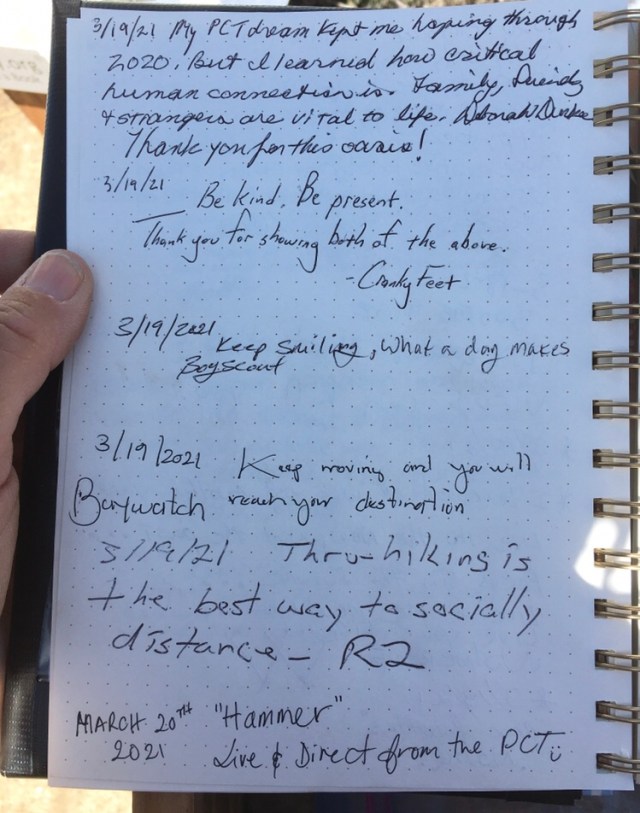 3/19/21 My PCT dream kept me hoping through
2020. But I learned how critical
human connection is. Family, friends
& strangers are vital to life. Deborah
Thank you for this oasis!
3/19/21 Be kind. Be present.
Thank you for showing both of the above.
- Cranky Feet
3/19/2021 Keep smiling, What a day makes
Boyscout
3/19/2021 Keep moving and you will
Baywatch reach your destination
3/19/21 Thru-hiking is
the best way to socially
distance - R2
MARCH 20TH "Hammer"
2021 Live & Direct from the PCT